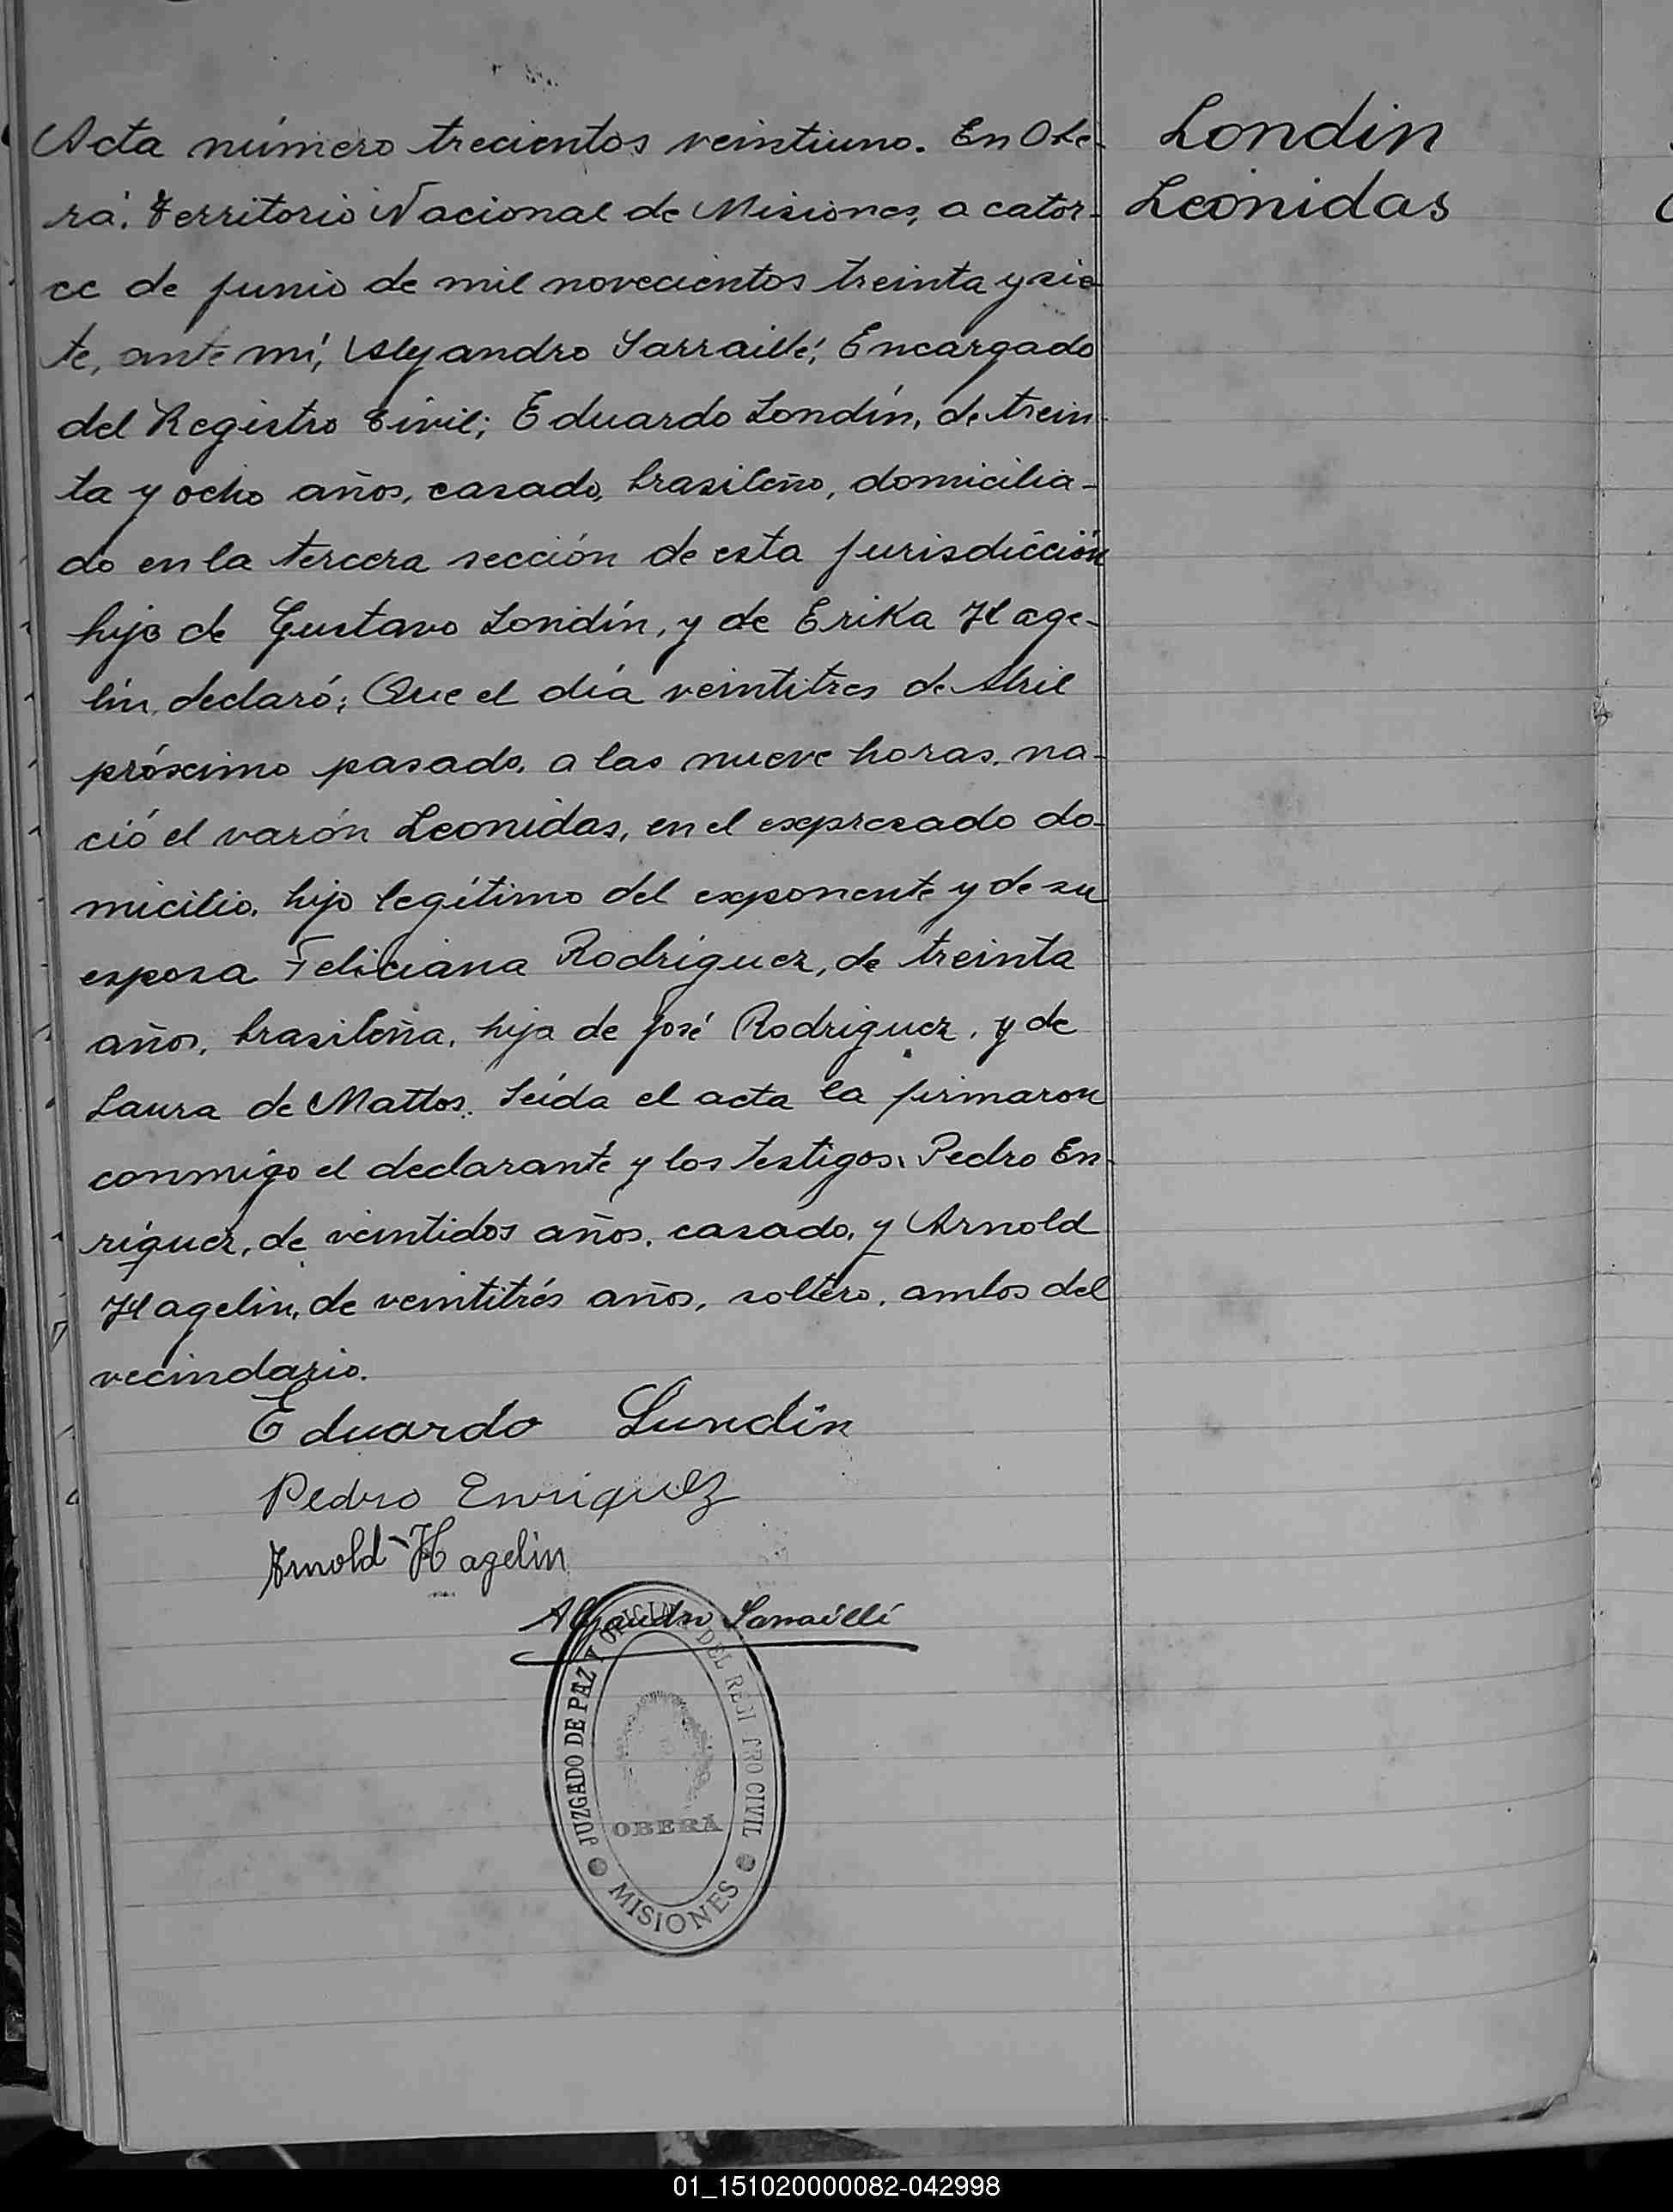 Londin
Leonidas
Acta número trecientos veintiuno. En Obe-
rá. Territorio Nacional de Misiones, a cator-
ce de junio de mil novecientos treinta y sie-
te, ante mí, Alejandro Sarraillé, Encargado
del Registro Civil; Eduardo Londín, de trein-
ta y ocho años, casado, brasileño, domicilia-
do en la tercera sección de esta jurisdicción
hijo de Gustavo Londín, y de Erika Hage-
lín, declaró; Que el día veintitres de Abril
próximo pasado, a las nueve horas, na-
ció el varón Leonidas, en el expresado do-
micilio, hijo legítimo del exponente y de su
esposa Feliciana Rodriguez, de treinta
años, brasileña, hija de José Rodriguez, y de
Laura de Mattos. Leída el acta la firmaron
conmigo el declarante y los testigos, Pedro En-
ríquez, de veintidos años, casado, y Arnold
Hagelin, de veintitrés años, soltero, ambos del
vecindario.
Eduardo Lundin
Pedro Enriquez
Arnold Hagelin
Alejandro Sarraillé
JUZGADO DE PAZ Y OFICINA DEL REGISTRO CIVIL
OBERA
MISIONES
01_151020000082-042998